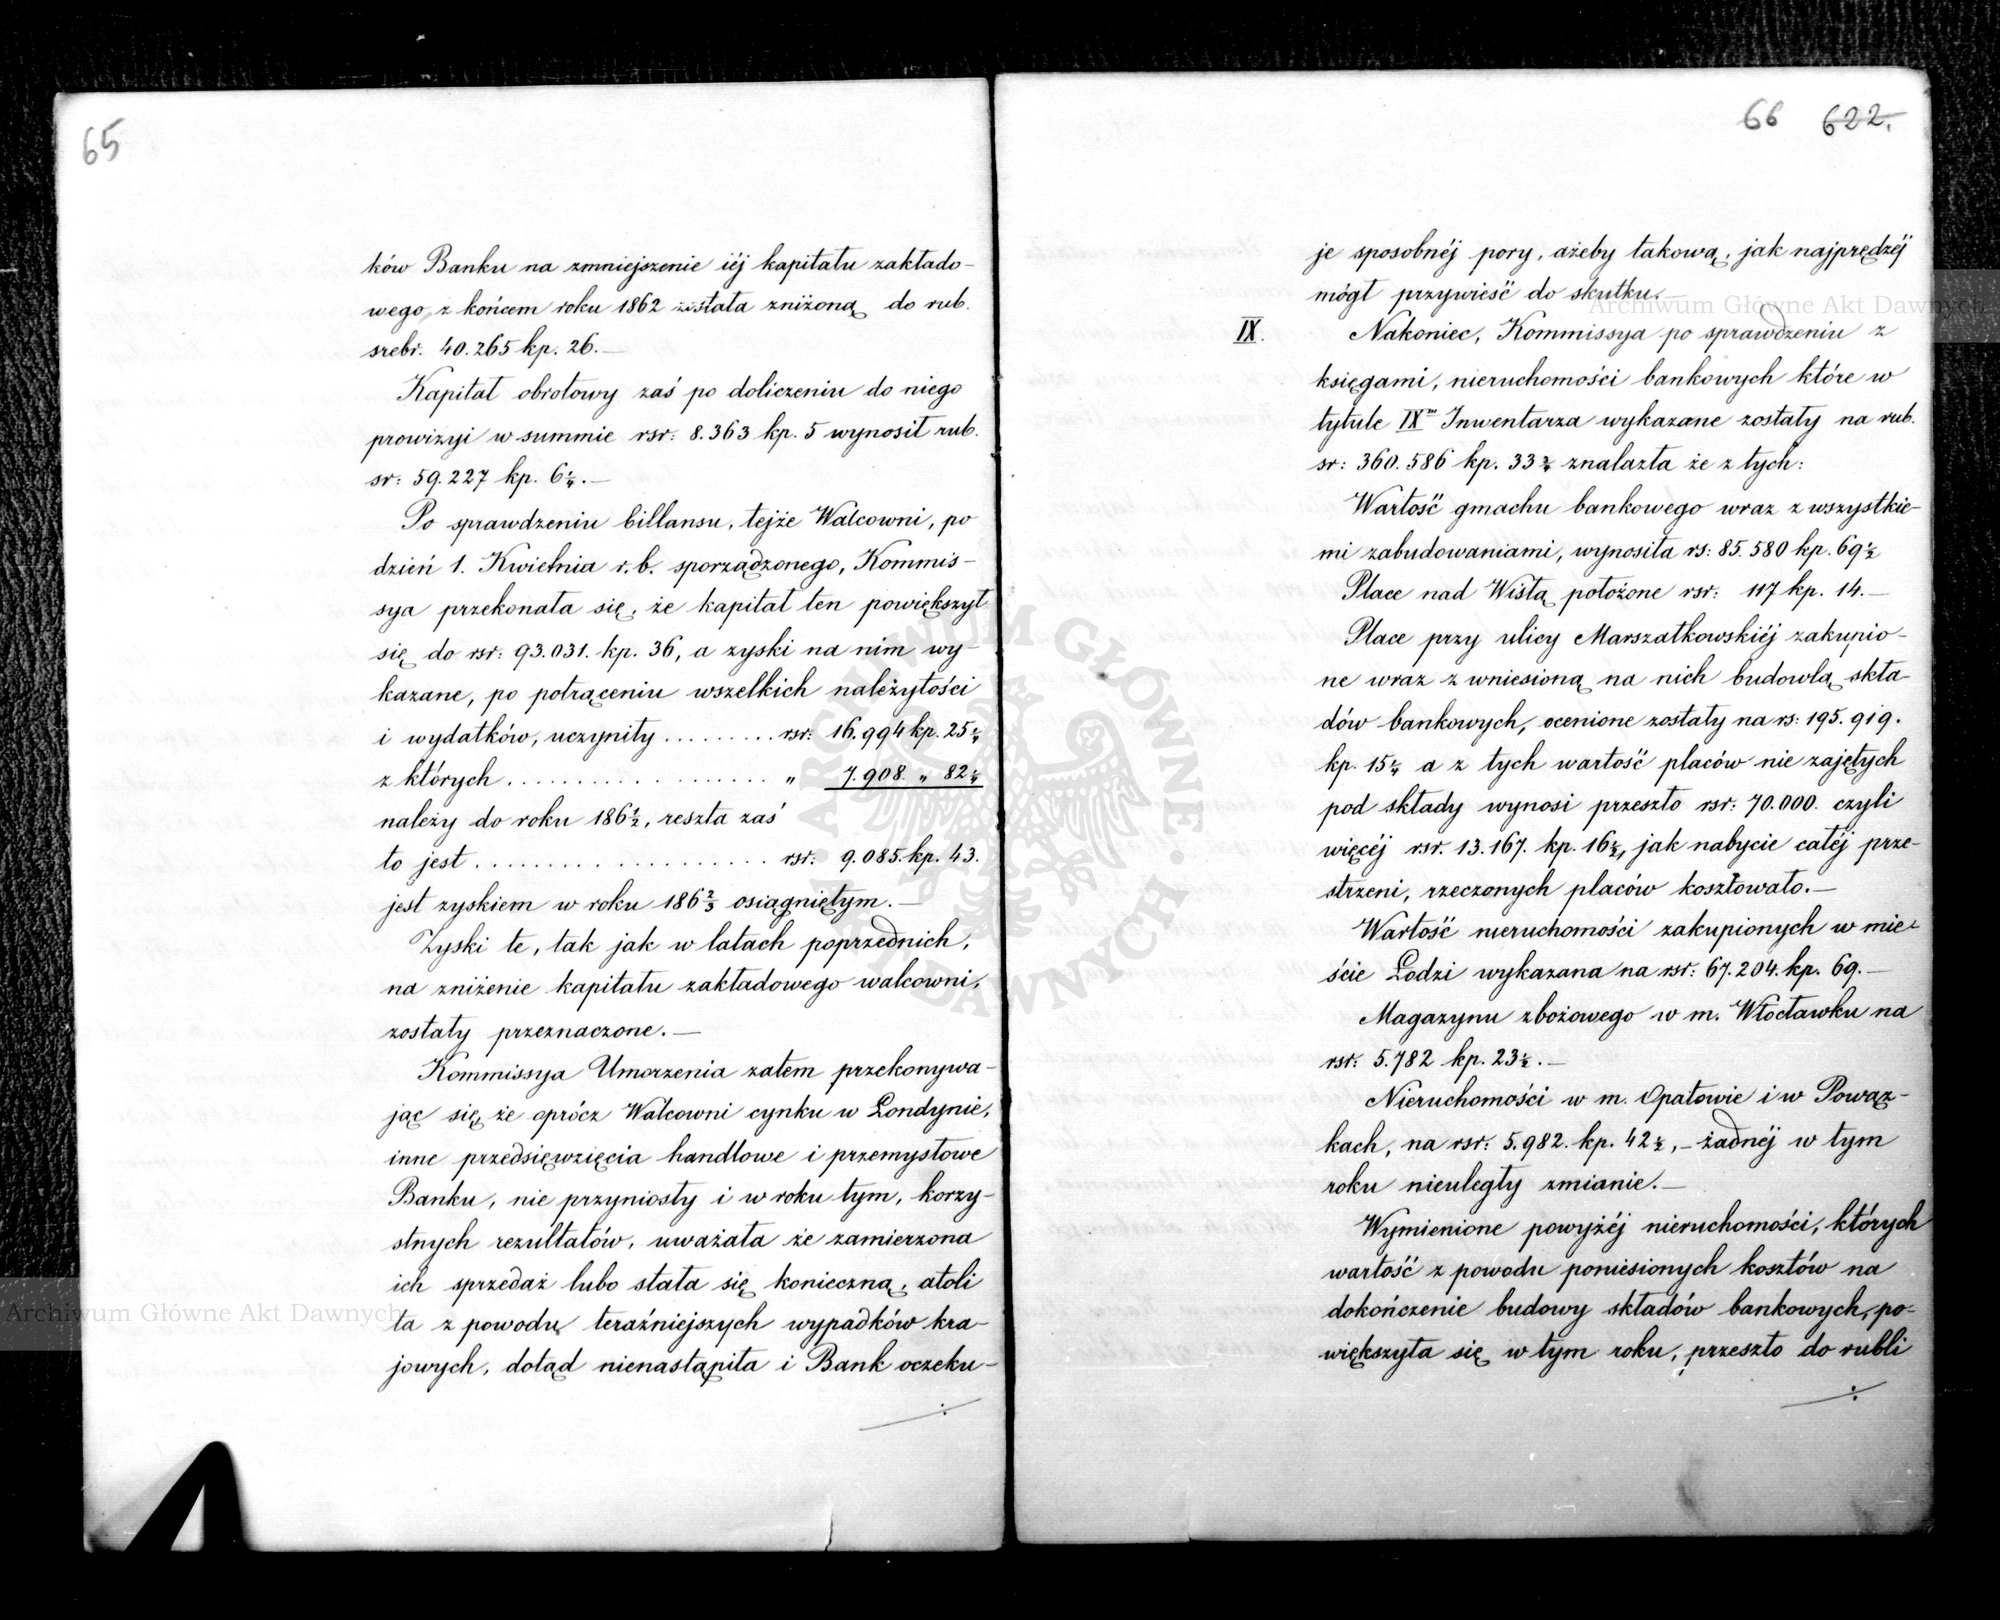 65
ków Banku na zmniejszenie iéj kapitału zakłado-
wego, z końcem roku 1862 została zniżoną do rub.
srebr. 40.265 kp. 26.—
Kapitał obrotowy zaś po doliczeniu do niego
prowizyi w summie rsr: 8.363 kp. 5 wynosił rub.
sr: 59.227 kp. 6¼.—
Po sprawdzeniu billansu, tejże Walcowni, po
dzień 1. Kwietnia r. b. sporządzonego, Kommis-
sya przekonała się, że kapitał ten powiększył
się do rsr: 93.031. kp. 36, a zyski na nim wy-
kazane, po potrąceniu wszelkich należytości
i wydatków, uczyniły ......... rsr: 16.994 kp. 25¼
z których .................. „ 7.908. „ 82¼
należy do roku 186½, reszta zaś
to jest .................... rsr: 9.085. kp. 43.
jest zyskiem w roku 186⅔ osiągniętym.—
Zyski te, tak jak w latach poprzednich,
na zniżenie kapitału zakładowego walcowni,
zostały przeznaczone.—
Kommissya Umorzenia zatem przekonywa-
jąc się, że oprócz Walcowni cynku w Londynie,
inne przedsięwzięcia handlowe i przemysłowe
Banku, nie przyniosły i w roku tym, korzy-
stnych rezultatów, uważała że zamierzona
ich sprzedaż lubo stała się konieczną, atoli
ta z powodu teraźniejszych wypadków kra-
jowych, dotąd nienastąpiła i Bank oczeku-
./.
66 622.
je sposobnéj pory, ażeby takową, jak najprędzéj
mógł przywieść do skutku.—
IX. Nakoniec, Kommissya po sprawdzeniu z
księgami, nieruchomości bankowych które w
tytule IXm Inwentarza wykazane zostały na rub.
sr: 360.586 kp. 33¾ znalazła że z tych:
Wartość gmachu bankowego wraz z wszystkie-
mi zabudowaniami, wynosiła rs: 85.580 kp. 69½
Place nad Wisłą położone rsr: 117 kp. 14.—
Place przy ulicy Marszałkowskiéj zakupio-
ne wraz z wniesioną na nich budowlą skła-
dów bankowych, ocenione zostały na rs: 195.919.
kp. 15¼ a z tych wartość placów nie zajętych
pod składy wynosi przeszło rsr: 70.000. czyli
więcéj rsr. 13.167. kp. 16½, jak nabycie całéj prze-
strzeni, rzeczonych placów kosztowało.—
Wartość nieruchomości zakupionych w mie-
ście Łodzi wykazana na rsr: 67.204. kp. 69.—
Magazynu zbożowego w m. Włocławku na
rsr: 5.782 kp. 23½.—
Nieruchomości w m. Opatowie i w Powąz-
kach, na rsr: 5.982. kp. 42½,— żadnéj w tym
roku nieuległy zmianie.—
Wymienione powyżéj nieruchomości, których
wartość z powodu poniesionych kosztów na
dokończenie budowy składów bankowych, po-
większyła się w tym roku, przeszło do rubli
./.
Archiwum Główne Akt Dawnych
Archiwum Główne Akt Dawnych
ARCHIWUM GŁÓWNE AKT DAWNYCH